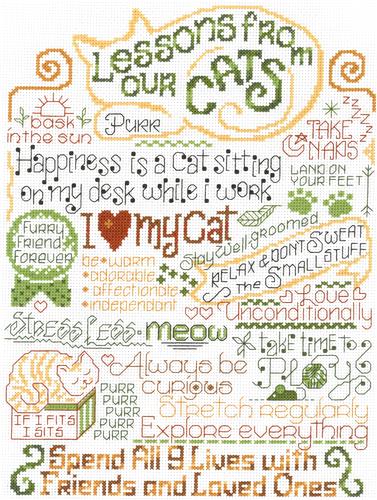 Lessons from
our CATS
bask
in the sun
Purr
TAKE
NAPS
zzzzz
Happiness is a cat sitting
on my desk while i work
LAND ON
YOUR FEET
Furry
Friend
Forever
I ❤ my Cat
be • warm
• adorable
• affectionate
• independant
Stay well-groomed
RELAX & DONT SWEAT
the SMALL STUFF
Love
Unconditionally
STRESS LESS • meow
take time to
PLAY
Always be
curious
IF I FITS
I SITS
PURR
PURR
PURR
PURR
PURR
Stretch regularly
Explore everything
Spend All 9 Lives with
Friends and Loved Ones